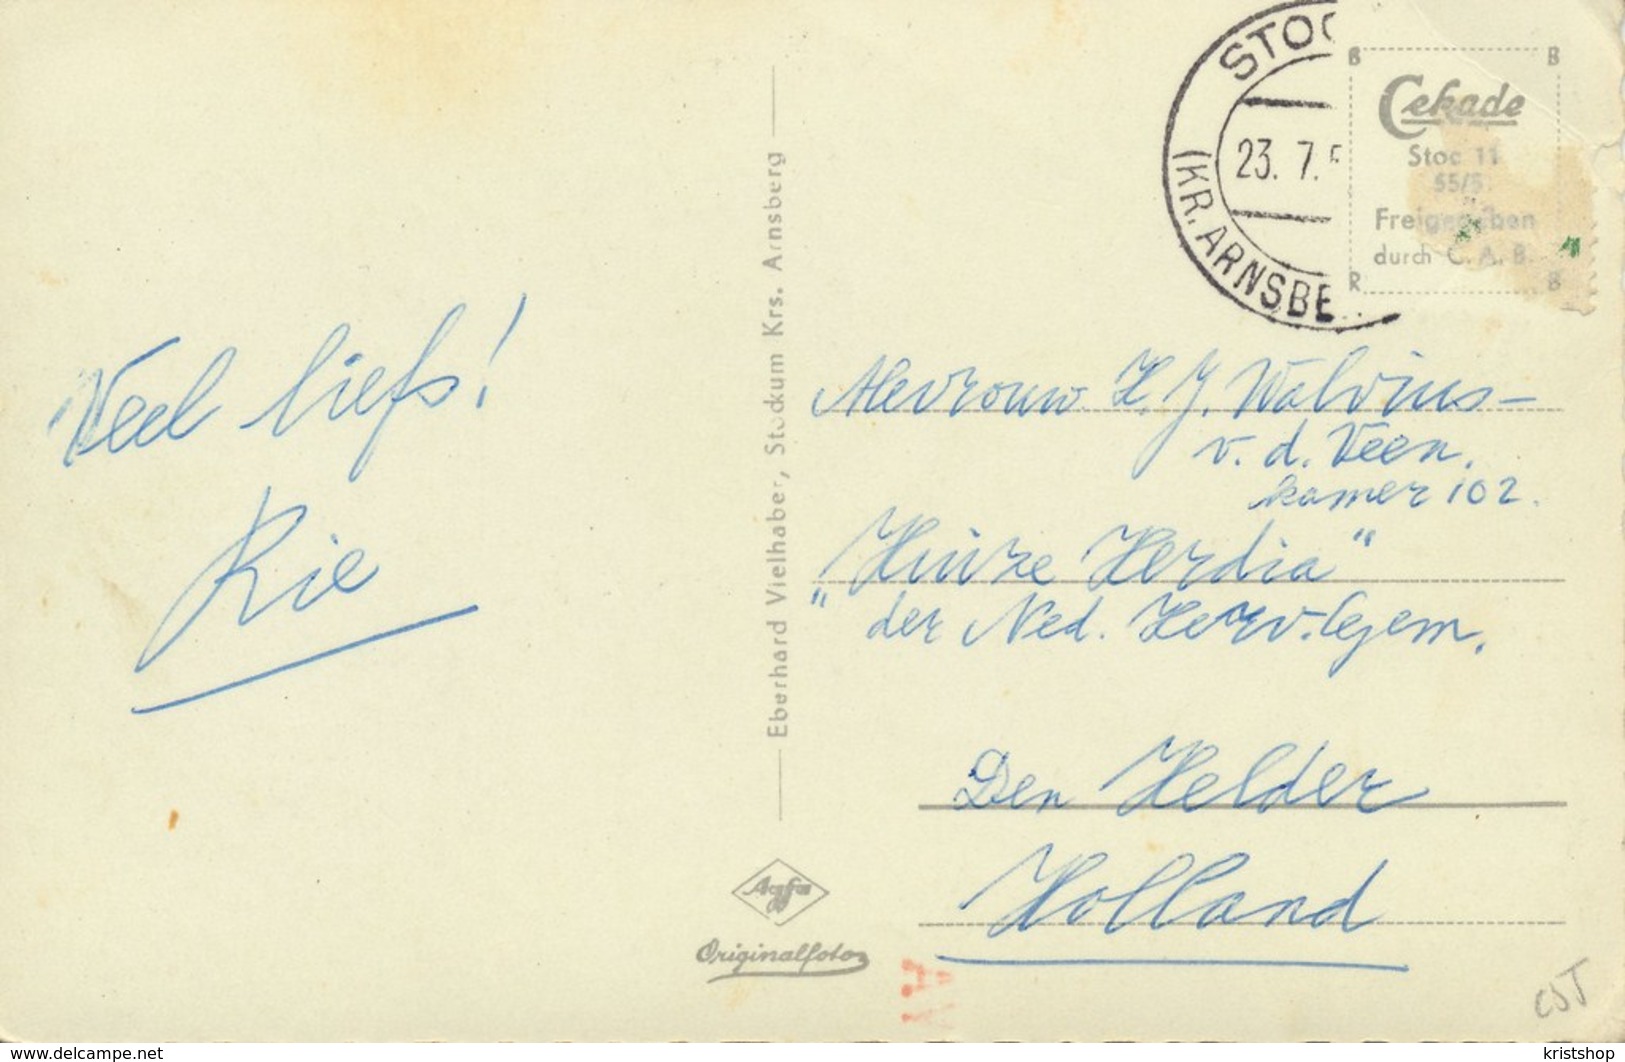 STOC
23. 7. 5
(KR. ARNSBE
B B
Cekade
Stoc 11
55/5
Freigegeben
durch C. A. B.
R B
Veel liefs!
Rie
Eberhard Vielhaber, Stockum Krs. Arnsberg
Mevrouw H. J. Walvius-
v. d. Veen.
kamer 102.
"Huize Herdia"
der Ned. Herv. Gem.
Den Helder
Holland
Agfa
Originalfoto
CST
www.delcampe.net
kristshop